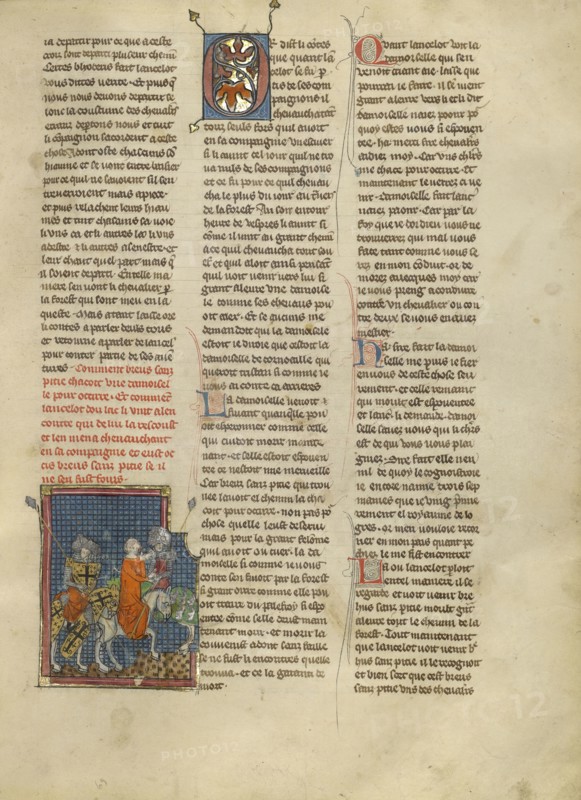 la departir pour ce que a ceste
croix sont departi plusieur chemin
Certes bliobleris fait lancelot
vous dittes verite · Et puis q
nous nous devons departir se
lonc la coustume des chevaliers
errans departons nous et tuit
li compaignon sacordent a ceste
chose
hiaume et se vont entrebaisier
pour ce que ne savoient sil sen
treverroient mais apiece ·
et puis relacent leurs hiau
mes et tint chascuns sa voie
li uns ca et li autres la li uns
a destre et li autres a senestre et
leur chaut quel part mais q
il soient departi · En tele ma
niere sen vont li chevalier p
la forest qui sont meu en la
queste · Mais atant laisse ore
li contes a parler deuls tous
et retourne a parler de lancel
pour conter partie de ses aven
tures · Comment breus sans
pitie chacoit une damoisel
le pour occirre · Et comment
lancelot dou lac li vint a len
contre qui de lui la rescoust
et len mena chevauchant
en sa compaignie et eust oc
cis breus sans pitie se il
ne sen fust fouis ·
Or dist li contes
que quant lan
celot se fu p
tis de ses com
paignons il
chevaucha tant
touz seuls fors quil avoit
en sa compaignie un escuier
si li avint cel jour quil ne tro
va nuls de ses compaignons
et ce fu pour ce quil chevau
cha le plus du jour au travers
de la forest · Au soir entour
heure de vespres li avint si
come il vint au grant chemin
a ce quil chevauchoit tout seu
et quil aloit ainsi pensant
quil voit venir vers lui si
grant aleure une damoise
le comme ses chevaus pou
oit aler · Et se aucuns me
demandoit qui la damoisele
estoit je diroie que cestoit la
damoiselle de cornoaille qui
queroit tristan si comme je
vous ai conte ca arrieres
La damoiselle venoit
fuiant quanque pou
oit esperonner comme celle
qui cuidoit morir mainte
nant · et selle estoit espoen
tee ce nestoit mie merveille
Car breus sans pitie qui trou
vee lavoit el chemin la cha
coit pour occirre · non pas po
chose quelle leust desservi
mais pour la grant felonnie
qui avoit ou cuer · la da
moiselle si comme je vous
conte sen fuioit par la forest
si grant oirre comme elle pou
oit traire du palefroy si espo
entee come selle deust main
tenant morir · et morir la
couvenist adont sans faille
se ne fust li encontres quelle
trouva · et ce la garanti de
mort ·
Quant lancelot voit la
damoiselle qui sen
venoit criant aie · lasse que
pourrai je faire · il se met
grant aleure vers li et li dit
damoiselle naiez poour por
quoy estes vous si espoen
tee · ha merci sire chevaliers
aidiez moy · Car uns chlrs
me chace pour occirre · et
maintenant le verrez ca ve
nir · Damoiselle fait lanc
naiez paour · Car par la
foy que je doi dieu vous ne
trouverez qui mal vous
face tant comme vous se
rez en mon conduit · or de
morez avecques moy car
je vous preng a conduire
contre un chevalier ou con
tre deux se vous en aviez
mestier ·
Ha sire fait la damoi
selle me puis je fier
en vous de ceste chose seu
rement · et celle remaint
qui moult est espoentee
et lanc li demande · damoi
selle savez vous qui li chrs
est de qui vous vous plai
gniez · Sire fait elle nen
nil · de quoy le cognoistroie
je encore nanne trois sep
maines que je ving prime
rement el royaume de lo
gres · Or men vouloie retor
ner en mon pais quant pe
chiez le me fist encontrer
La ou lancelot ploit
en tel maniere il se
regarde et voit venir bre
hus sans pitie moult grant
aleure tout le chemin de la
forest · Tout maintenant
que lancelot voit venir br
hus sans pitie il le recognoit
et bien scet que cest breus
sans pitie uns des chevaliers